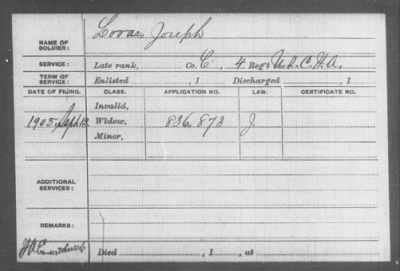 NAME OF SOLDIER: Lovas, Joseph
SERVICE: Late rank, Co. C, 4 Reg't U.S.C.H.A.
TERM OF SERVICE: Enlisted , 1 Discharged , 1
DATE OF FILING. CLASS. APPLICATION NO. LAW. CERTIFICATE NO.
Invalid,
1905, Sept 13 Widow, 836.873 J
Minor,
ADDITIONAL SERVICES:
REMARKS:
Died , 1 , at